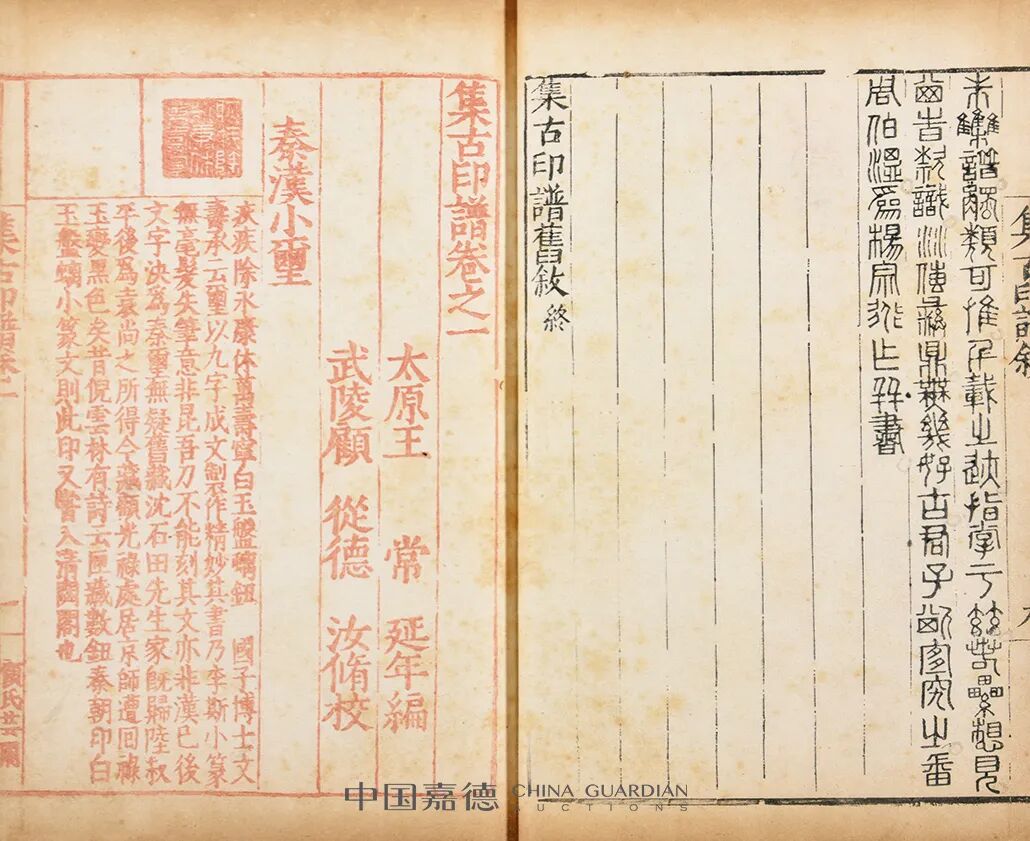 集古印譜敘
譜觸類可推千載之迹指掌
想見
好古君子
究之番
周伯溫爲楊宗道乍并書
集古印譜舊敘 終
集古印譜卷之一
太原王 常 延年編
武陵顧 從德 汝脩校
秦漢小璽
疢疾除永康休萬壽寧白玉盤螭鈕 國子博士文
壽承云璽以九字成文製作精妙其書乃李斯小篆
無毫髮失筆意非昆吾刀不能刻其文亦非漢已後
文字決為秦璽無疑舊藏沈石田先生家旣歸陸叔
平後爲袁尚之所得今藏顧光祿處居京師遭回祿
玉變黑色矣昔倪雲林有詩云匣藏數鈕秦朝印白
玉盤螭小篆文則此印又嘗入清閟閣也
集古印譜卷一
一
顧氏芸閣
中国嘉德 CHINA GUARDIAN
AUCTIONS